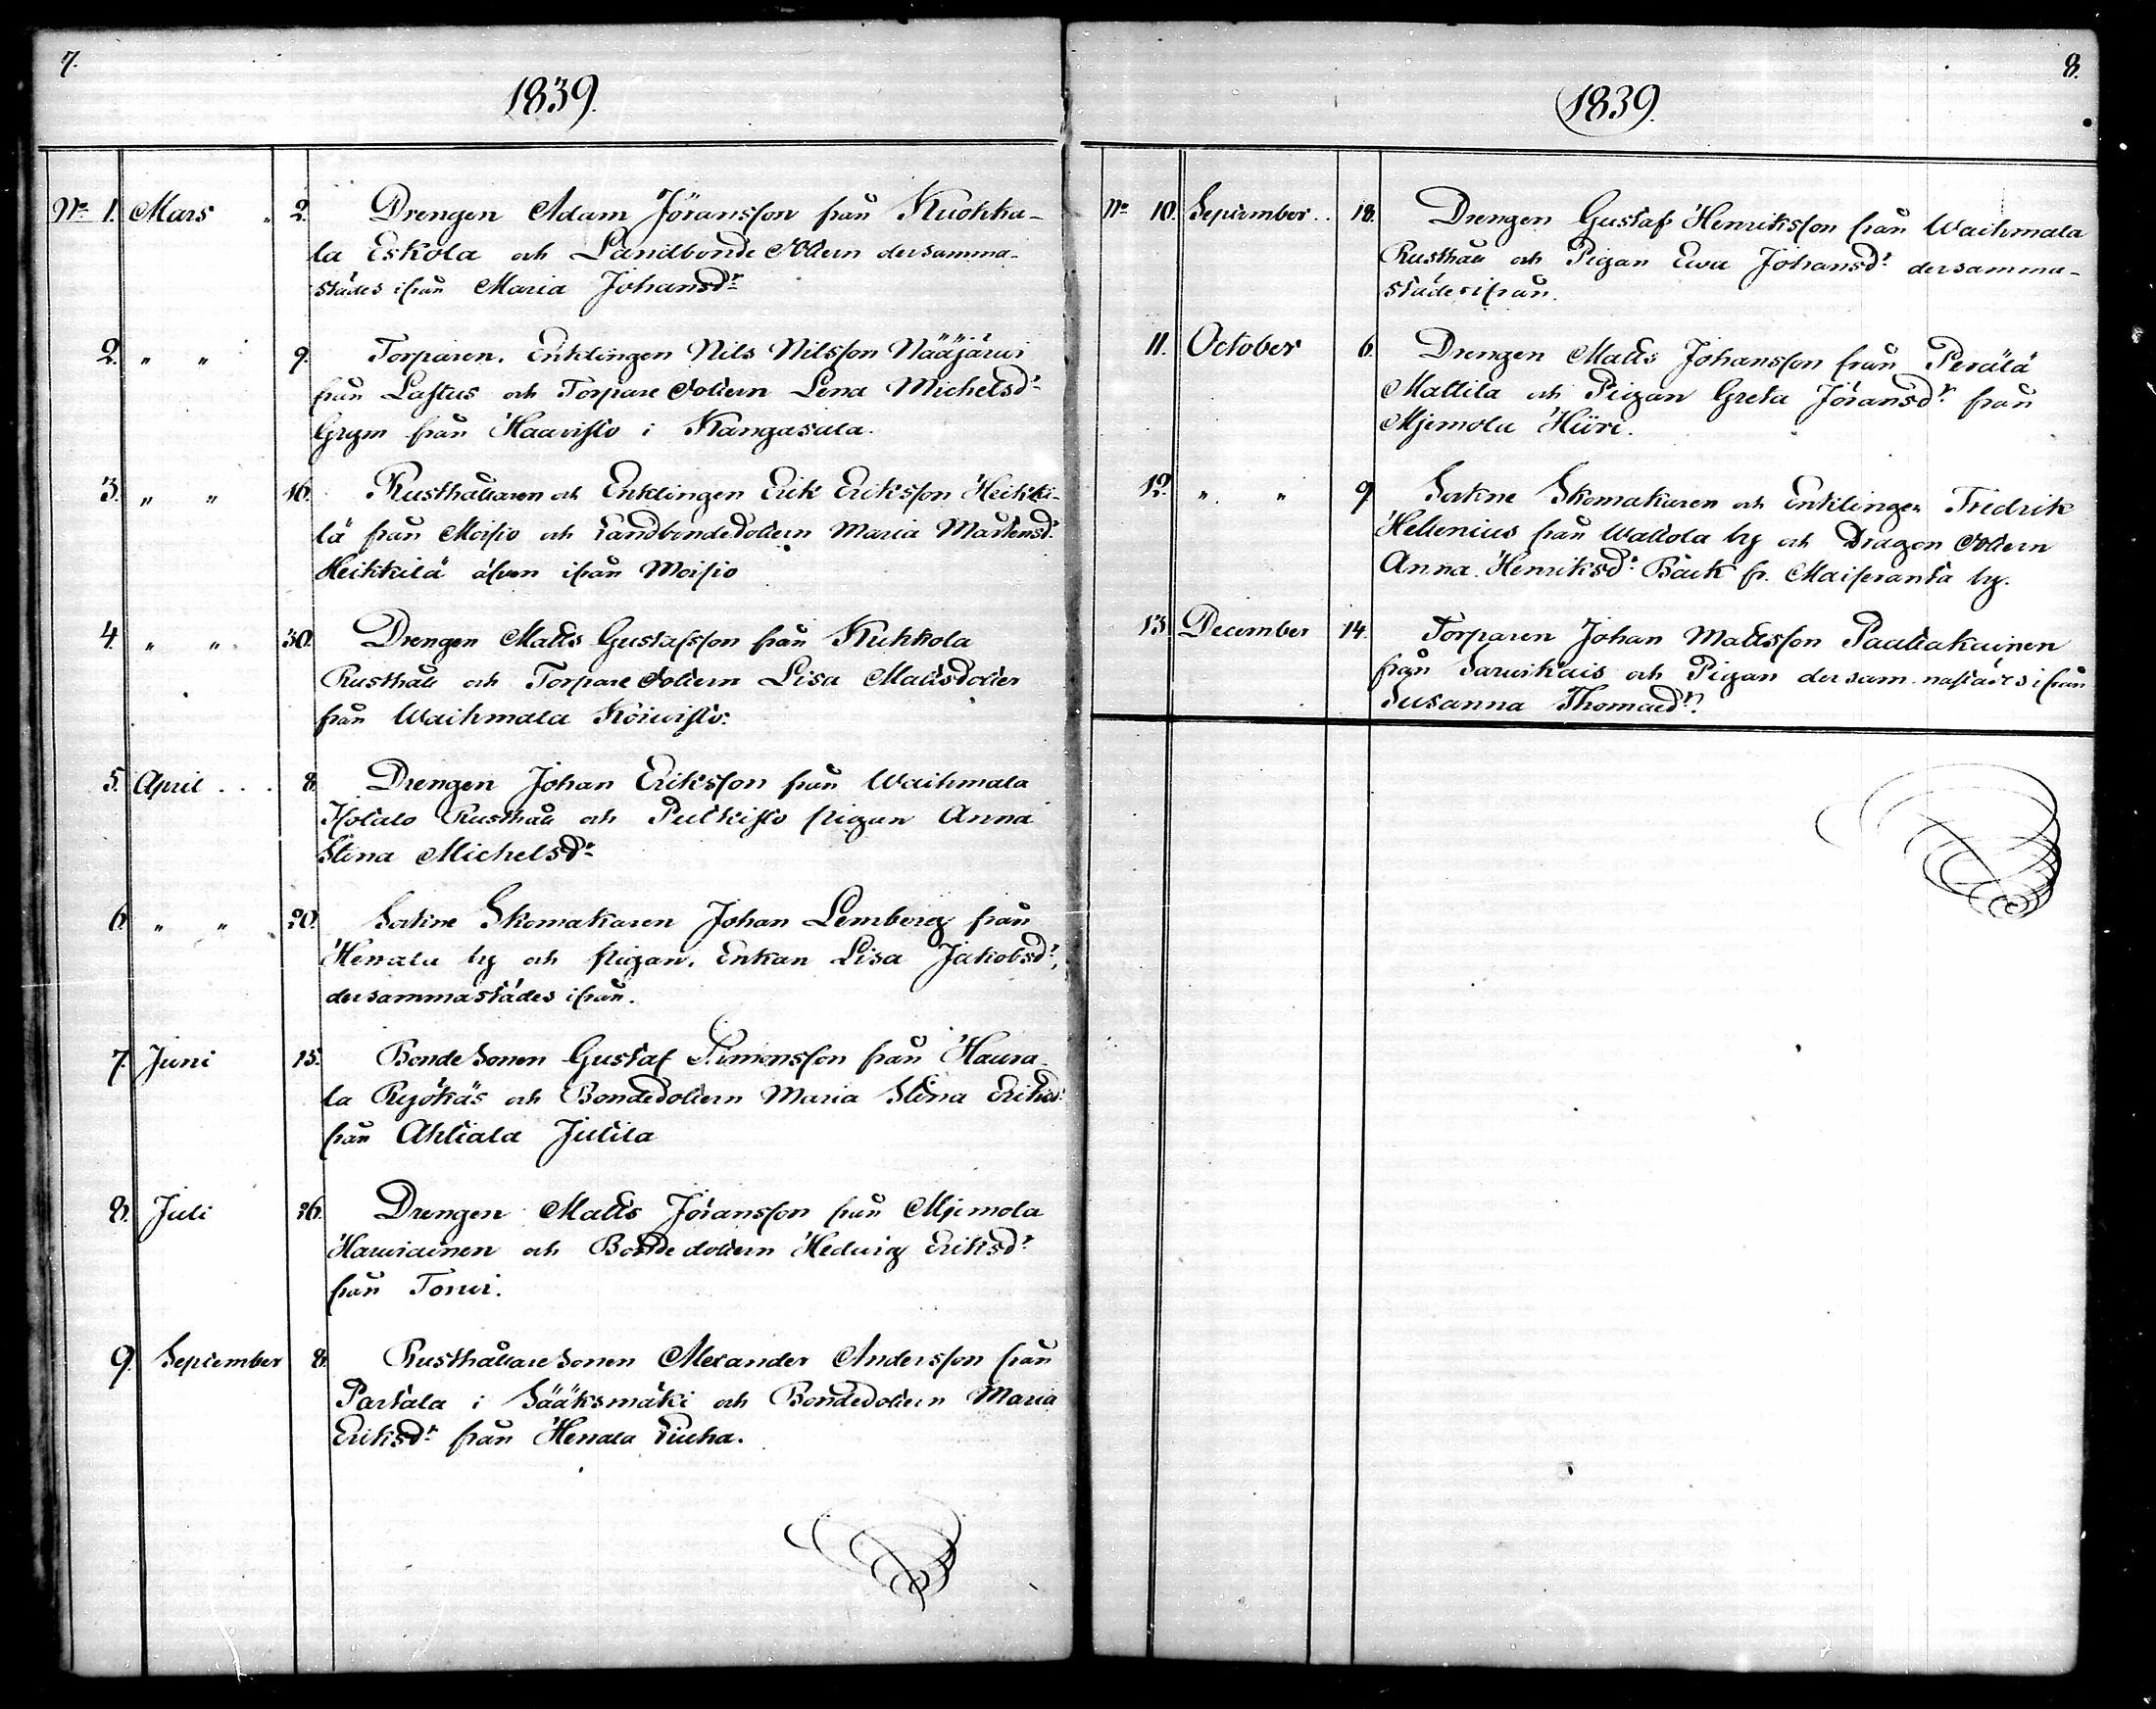 7.
1839.
No 1. Mars " 2. Drengen Adam Jöransson från Kuokka-
la Eskola och Landbonde dottern dersamma-
städes ifrån Maria Johansdr
2. " " 9. Torparen, Enklingen Nils Nilsson Nääjärvi
från Lastus och Torpare dottern Lena Michelsdr
Grym från Haavisto i Kangasala.
3. " " 16. Rusthållaren och Enklingen Erik Eriksson Heikki-
lä från Moisio och Landbondedottern Maria Mårtensdr
Heikkilä äfven ifrån Moisio
4. " " 30. Drengen Matts Gustafsson från Kukkola
Rusthåll och Torpare dottern Lisa Mattsdotter
från Waihmala Koivisto.
5. April . . . 8. Drengen Johan Eriksson från Waihmala
Isotalo Rusthåll och Pulkisto pigan Anna
Stina Michelsdr
6. " " 20. Sockne Skomakaren Johan Lemberg från
Henala by och pigan, Enkan Lisa Jakobsdr,
dersammastädes ifrån.
7. Juni 15. Bondesonen Gustaf Simonsson från Haura-
la Ryökäs och Bondedottern Maria Stina Eriksdr
från Ahtiala Jutila
8. Juli 26. Drengen Matts Jöransson från Mjemola
Harviainen och Bonde dottern Hedvig Eriksdr
från Torvi.
9. September 8. Rusthållaresonen Alexander Andersson från
Partala i Sääksmäki och Bondedottern Maria
Eriksdr från Henala
8.
1839.
No 10. September . . 18. Drengen Gustaf Henriksson från Waihmala
Rusthåll och Pigan Ewa Johansdr dersamma-
städes ifrån.
11. October 6. Drengen Matts Johansson från Perälä
Mattila och Pigan Greta Jöransdr från
Mjemola Hiiri.
12. " " 9 Sockne Skomakaren och Enklingen Fredrik
Hellenius från Wallola by och Dragon dottern
Anna Henriksdr Bäck fr. Maiseranta by.
13. December 14. Torparen Johan Mattsson
från och Pigan dersammastädes ifrån
Susanna Thomasdr.